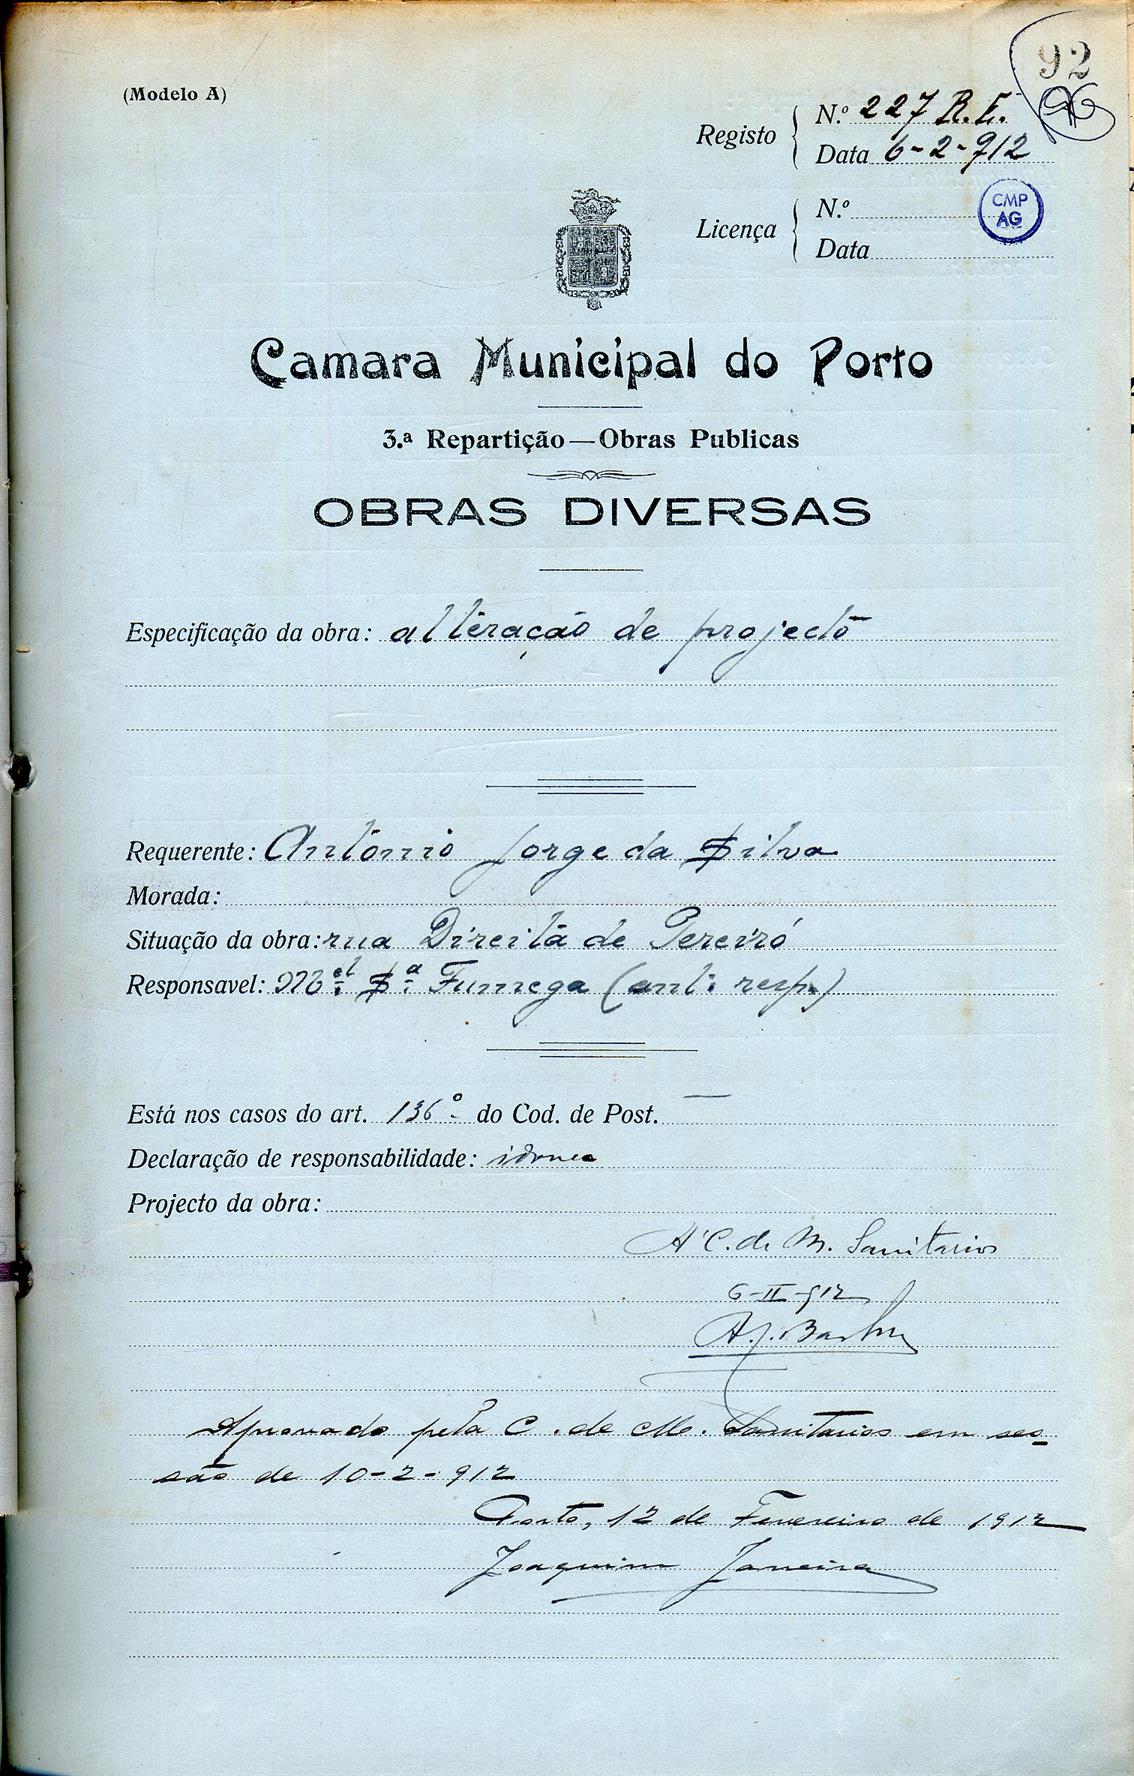 92
(Modelo A)
Registo
N.º 227 R.E.
Data 6-2-912
Licença
N.º
Data
CMP
AG
Camara Municipal do Porto
3.ª Repartição—Obras Publicas
OBRAS DIVERSAS
Especificação da obra: alteração de projecto
Requerente: António Jorge da Silva
Morada:
Situação da obra: rua Direita de Pereiró
Responsavel: M.el S.ª Fumega (ant. resp.)
Está nos casos do art. 136º do Cod. de Post.
Declaração de responsabilidade: idonea
Projecto da obra:
A' C. de M. Sanitarios
6-II-912
Aprovado pela C. de M. Sanitarios em ses-
são de 10-2-912
Porto, 12 de Fevereiro de 1912
Joaquim Janeira